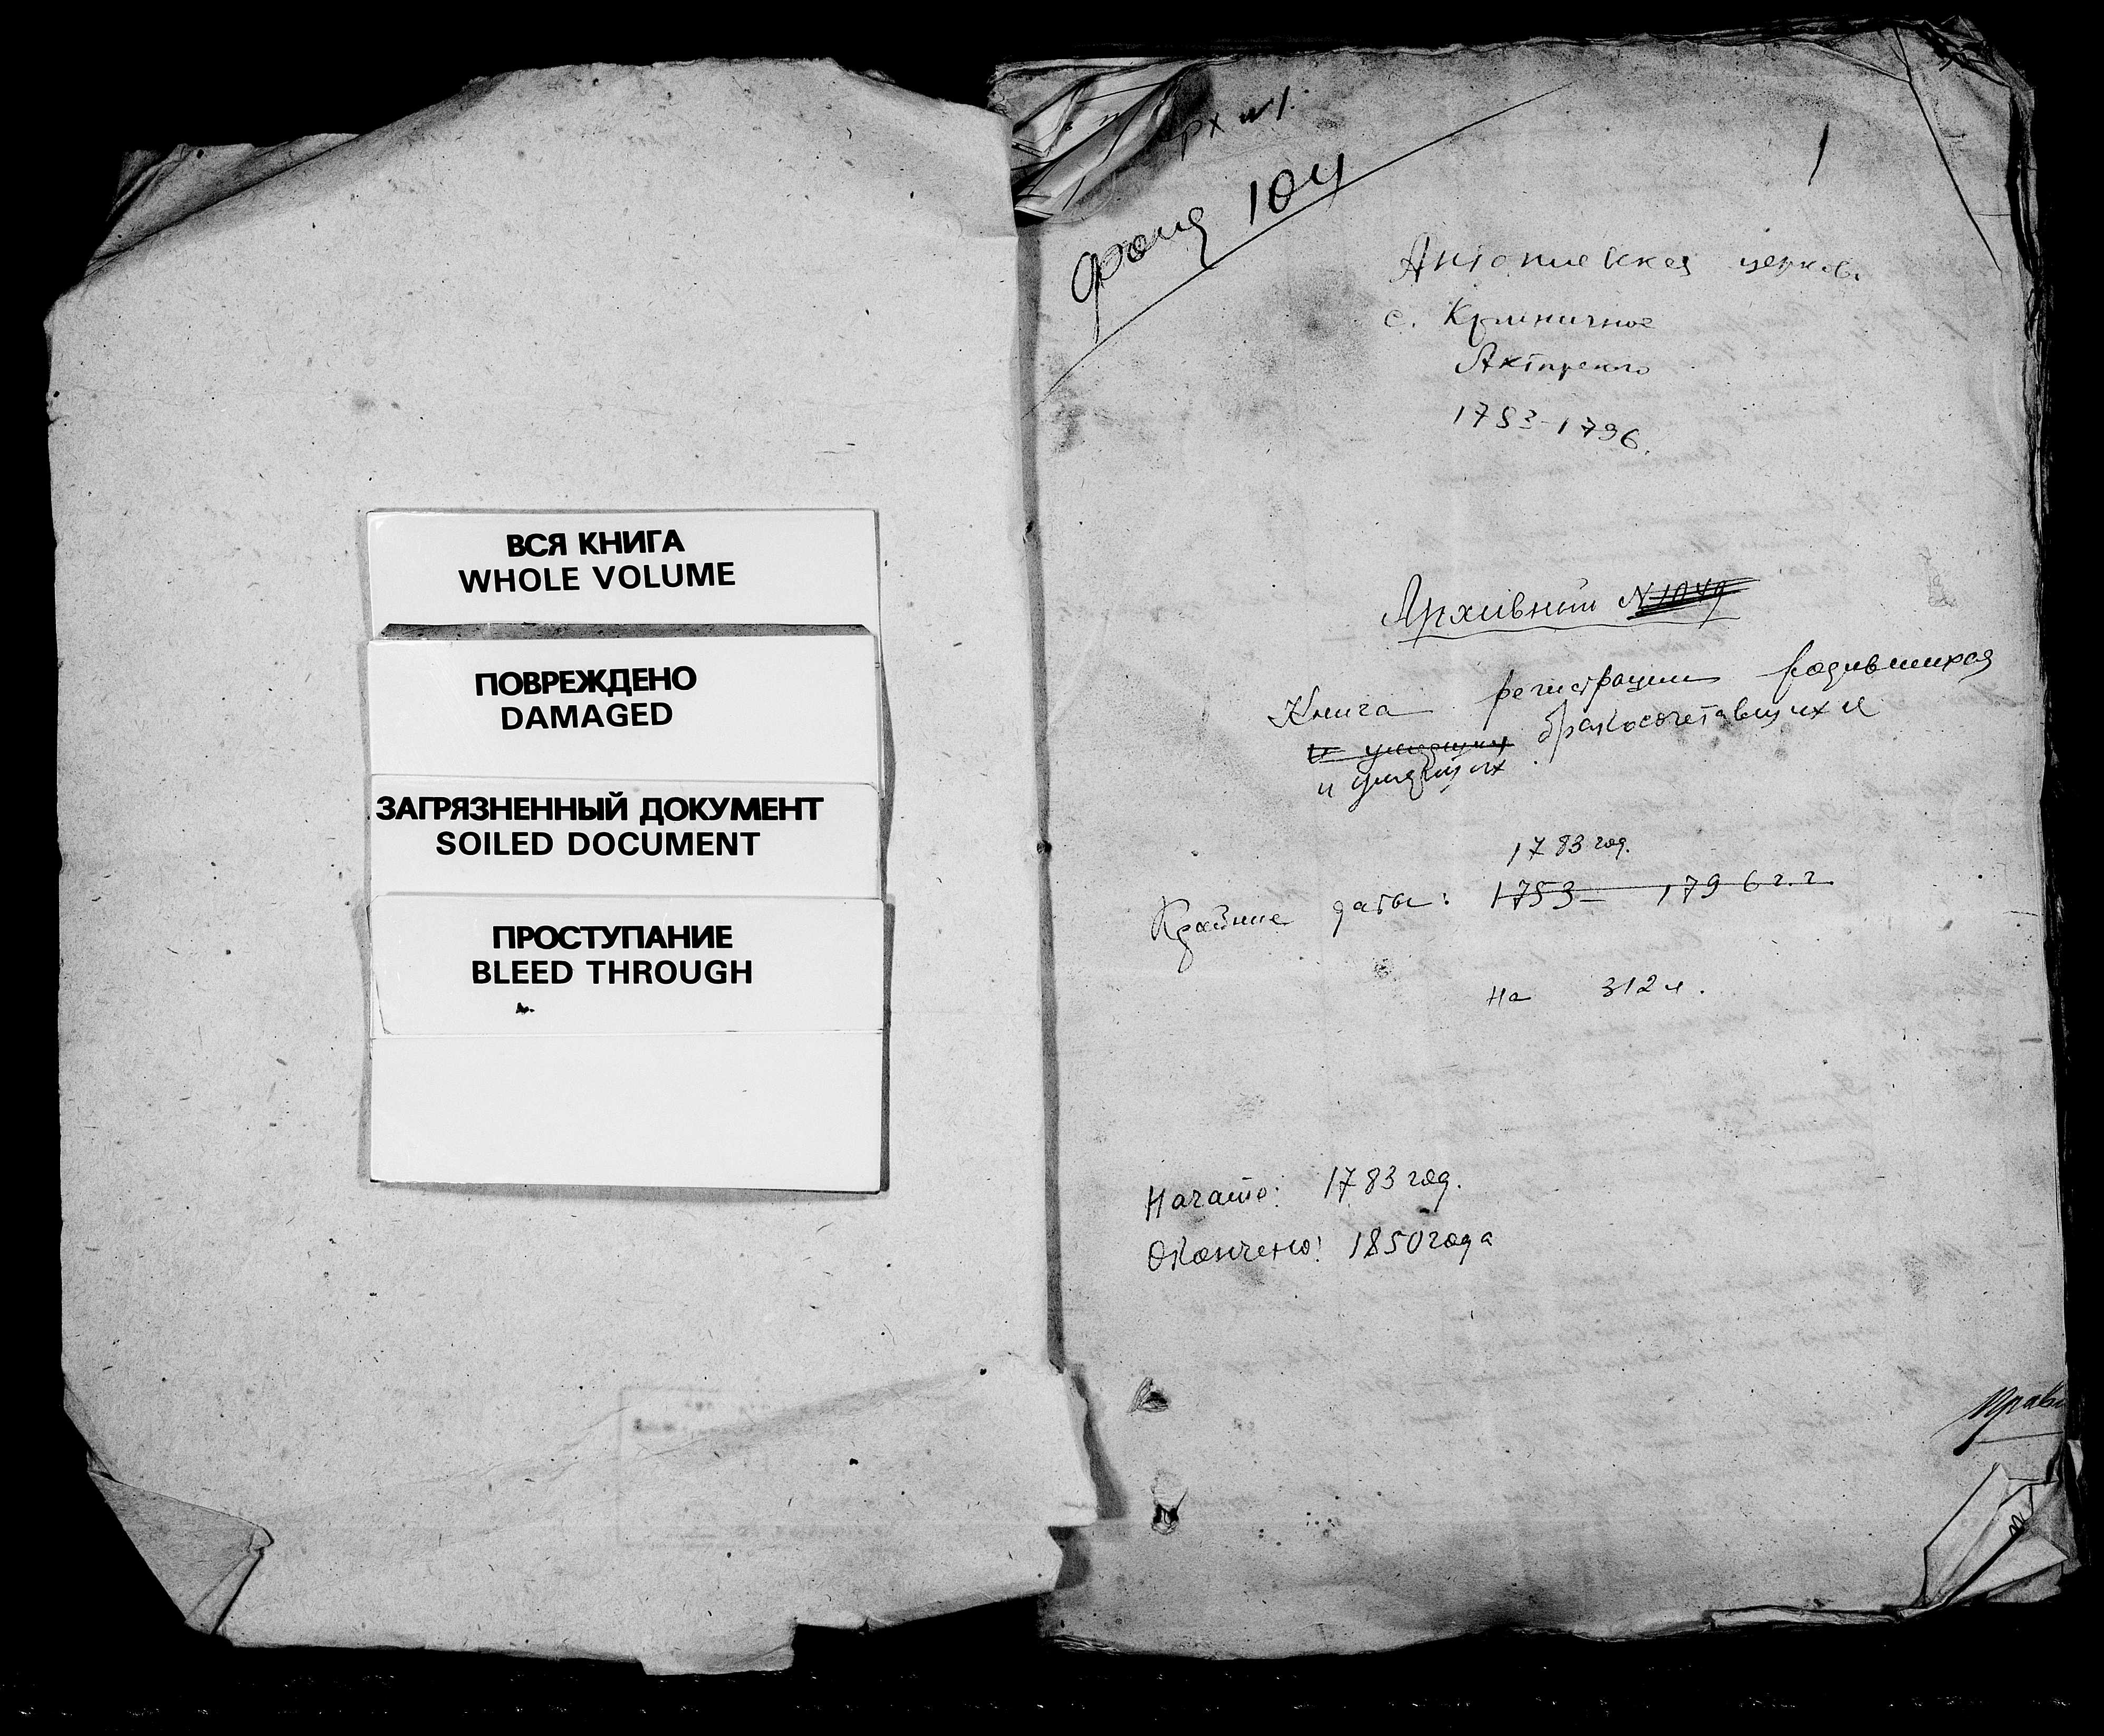 ВСЯ КНИГА
WHOLE VOLUME
ПОВРЕЖДЕНО
DAMAGED
ЗАГРЯЗНЕННЫЙ ДОКУМЕНТ
SOILED DOCUMENT
ПРОСТУПАНИЕ
BLEED THROUGH
рх №1.
фонд 104
1
Антониевская церковь
с. Криничное
Ахтырского
1783-1796.
Архівний N 1049
Книга регистрации родившихся
и умерших бракосочетавшихся
и умерших
1783 год.
Крайние даты: 1753- 1796 г.г.
На 312 л.
Начато: 1783 год.
Окончено: 1850 года